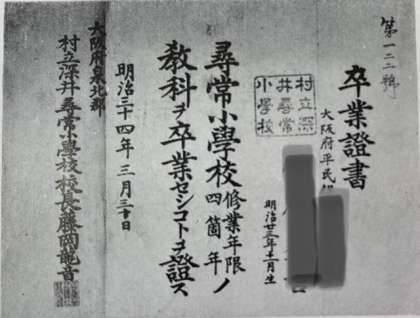 第一二二號
卒業證書
大阪府平民
明治廿三年十二月生
村立深
井尋常
小學校
尋常小學校修業年限四箇年ノ
教科ヲ卒業セシコトヲ證ス
明治三十四年三月三十日
大阪府泉北郡
村立深井尋常小學校校長藤岡龍音